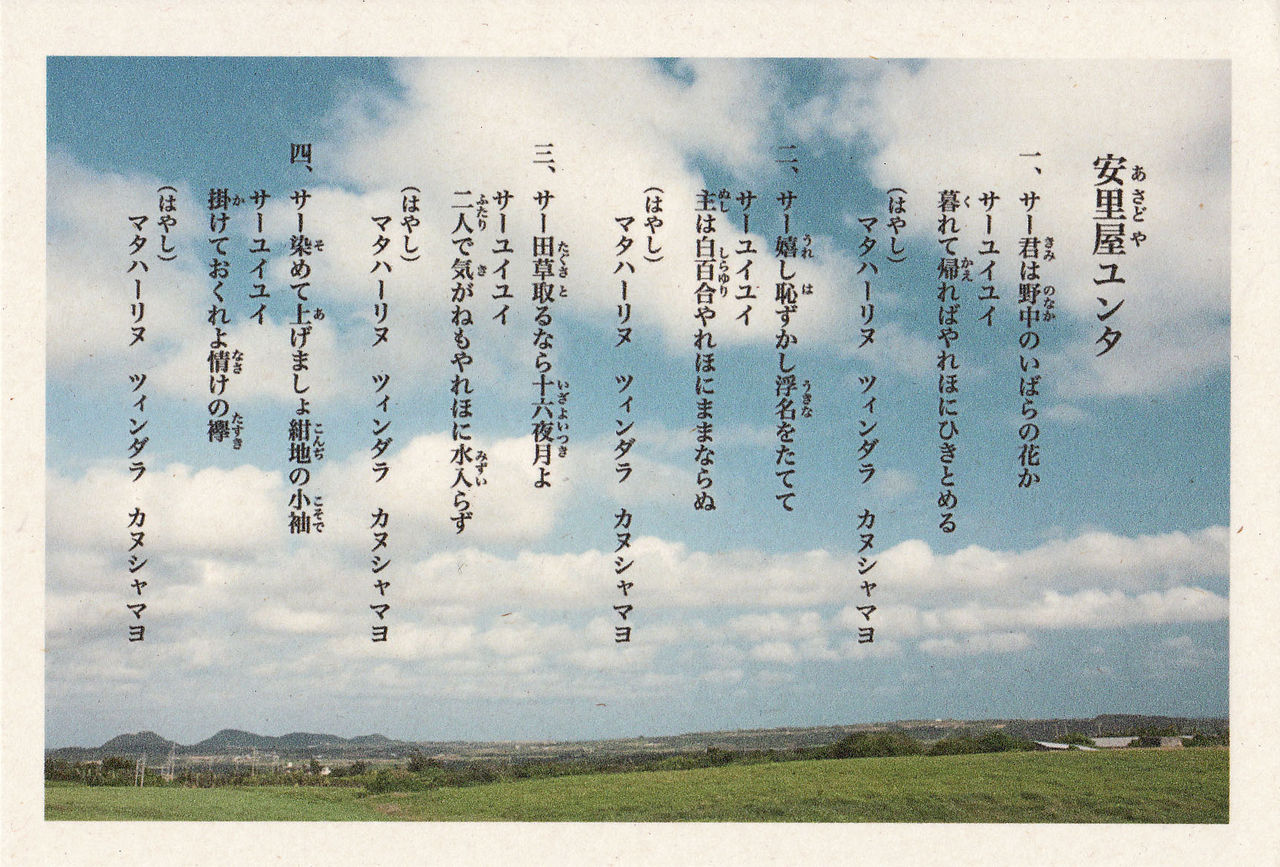 安里屋ユンタ
一、サー君は野中のいばらの花か
サーユイユイ
暮れて帰ればやれほにひきとめる
(はやし)
マタハーリヌ ツィンダラ カヌシャマヨ
二、サー嬉し恥ずかし浮名をたてて
サーユイユイ
主は白百合やれほにままならぬ
(はやし)
マタハーリヌ ツィンダラ カヌシャマヨ
三、サー田草取るなら十六夜月よ
サーユイユイ
二人で気がねもやれほに水入らず
(はやし)
マタハーリヌ ツィンダラ カヌシャマヨ
四、サー染めて上げましょ紺地の小袖
サーユイユイ
掛けておくれよ情けの襷
(はやし)
マタハーリヌ ツィンダラ カヌシャマヨ